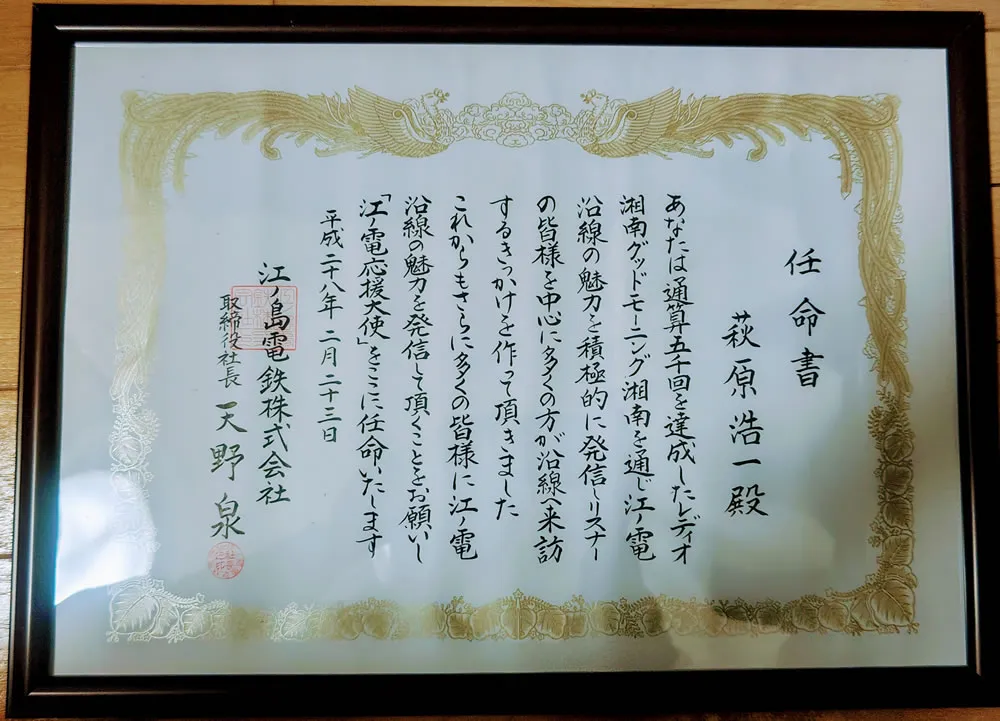 任命書
萩原浩一殿
あなたは通算五千回を達成したレディオ
湘南グッドモーニング湘南を通じ江ノ電
沿線の魅力を積極的に発信しリスナー
の皆様を中心に多くの方が沿線へ来訪
するきっかけを作って頂きました
これからもさらに多くの皆様に江ノ電
沿線の魅力を発信して頂くことをお願いし
「江ノ電応援大使」をここに任命いたします
平成二十八年二月二十三日
江ノ島電鉄株式会社
取締役社長 天野泉